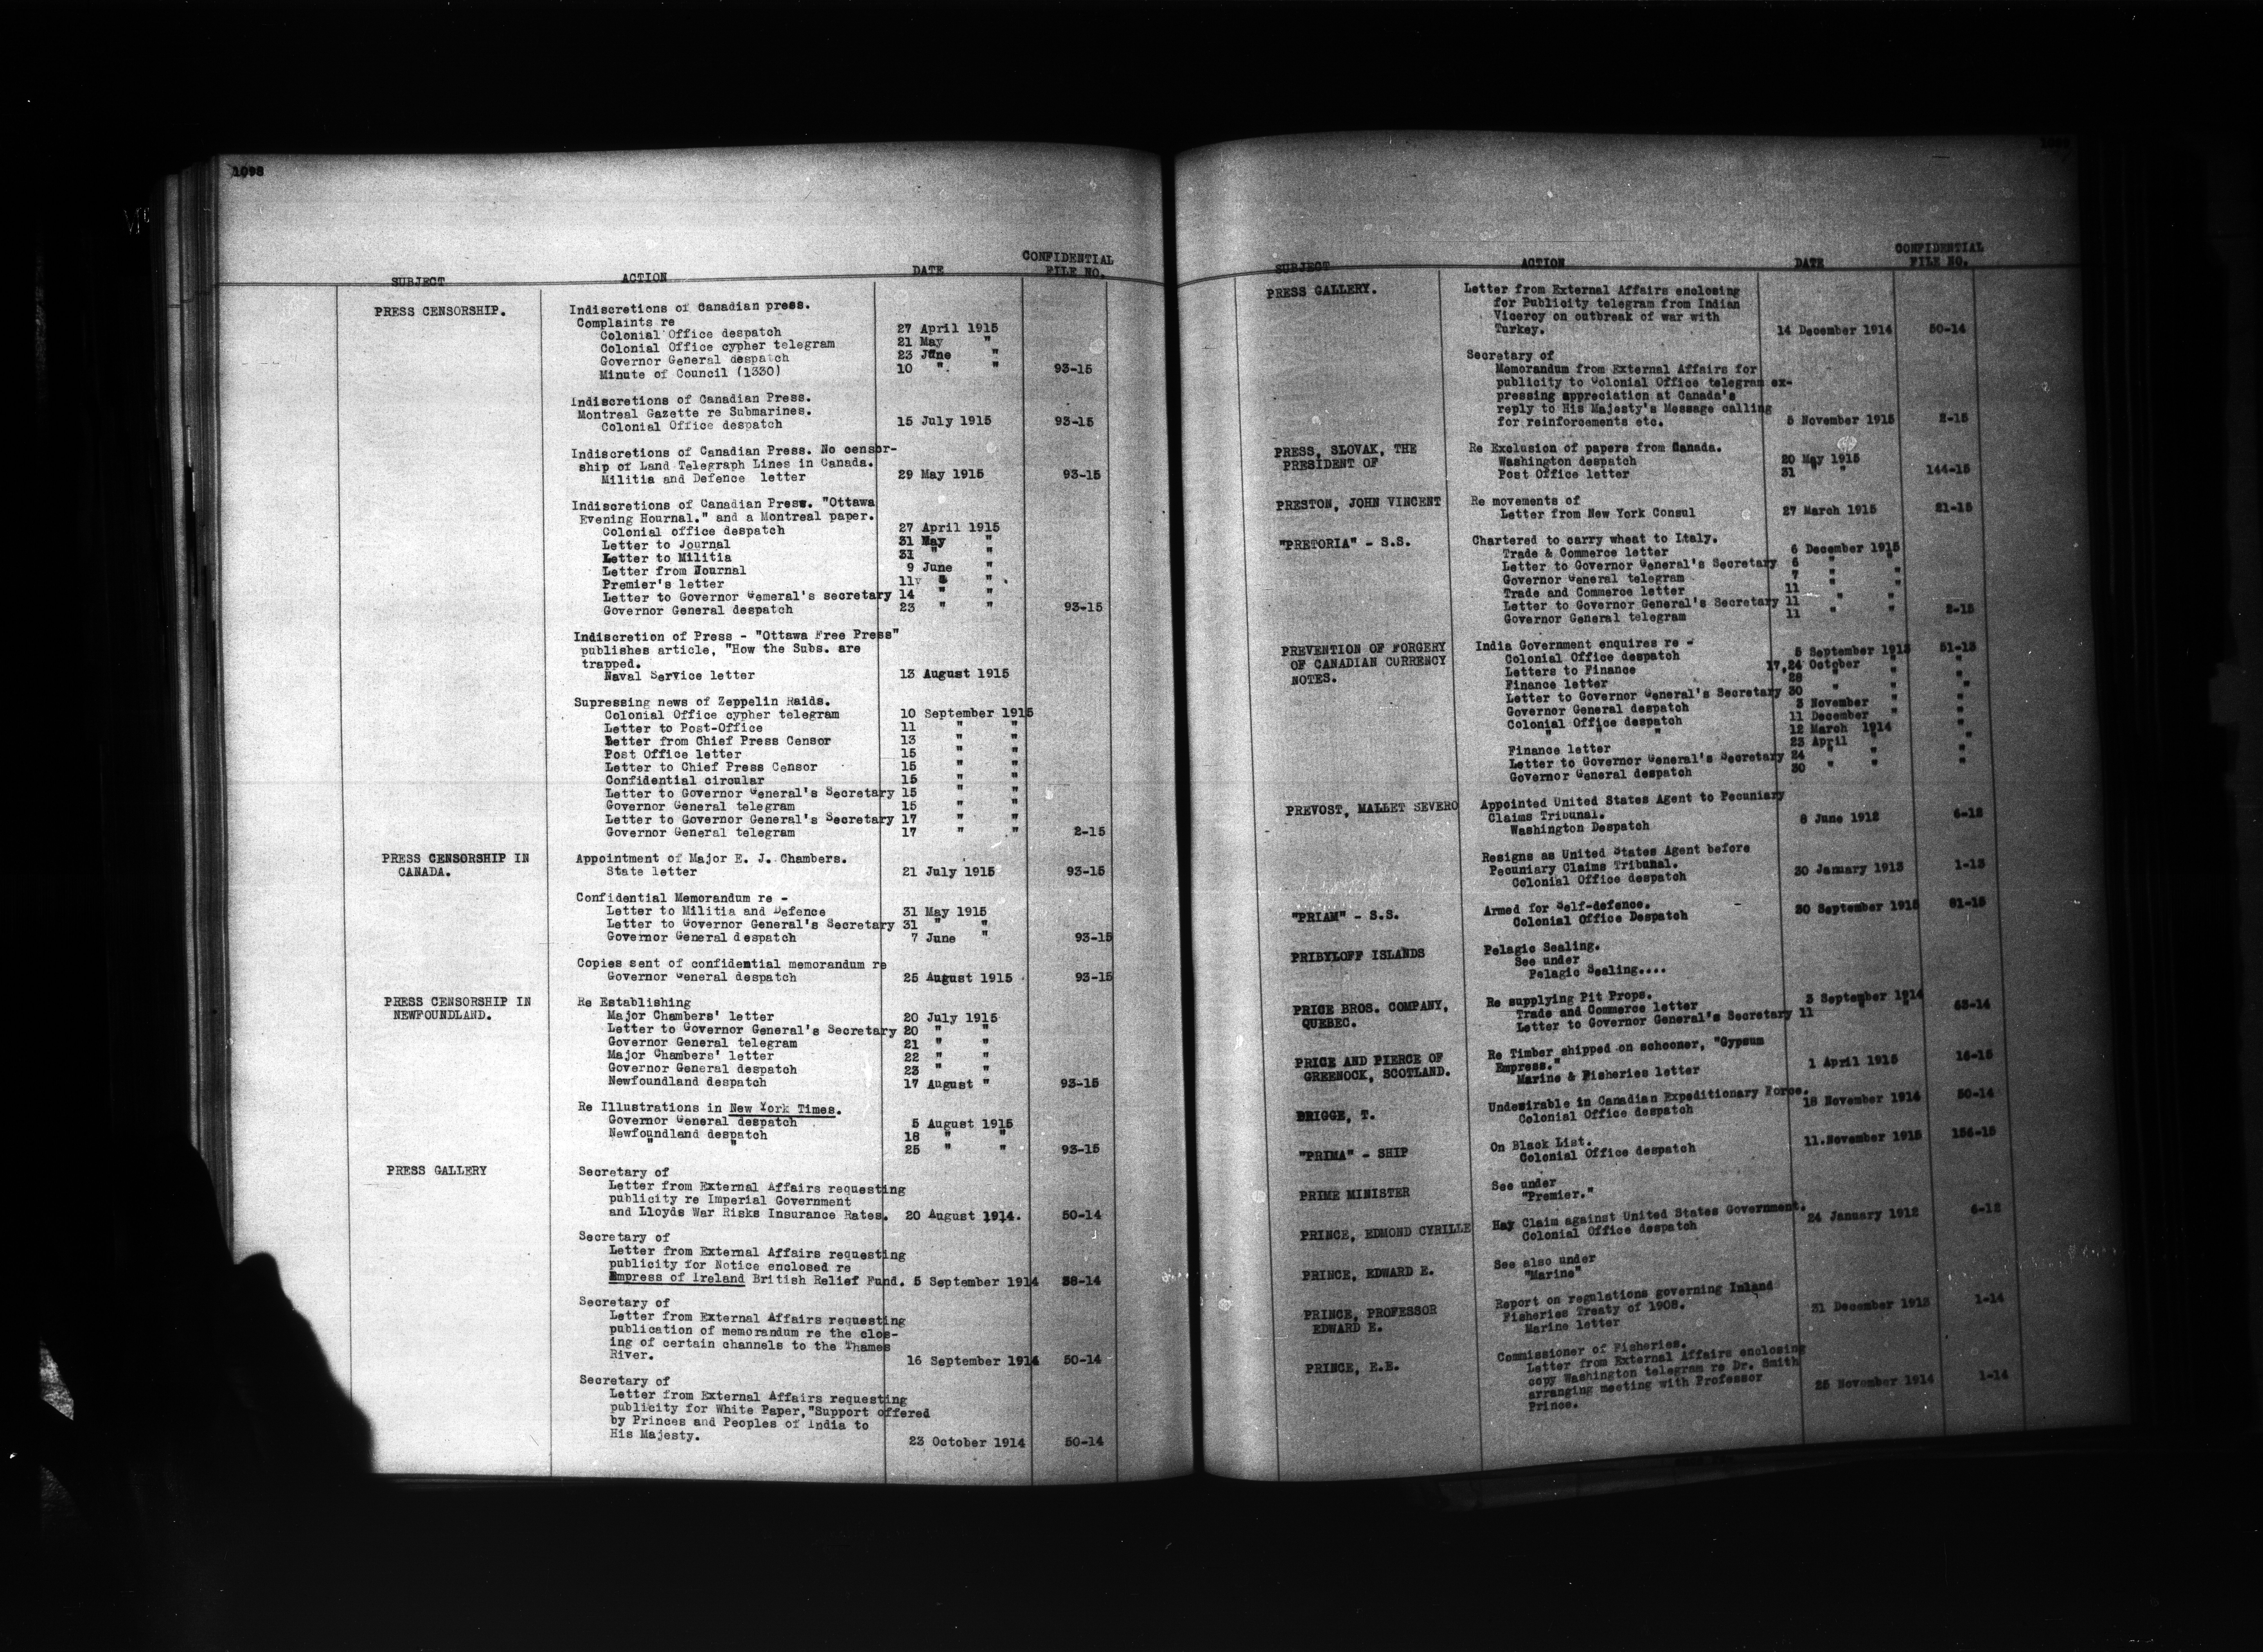 1098
SUBJECT ACTION DATE CONFIDENTIAL FILE NO.
PRESS CENSORSHIP. Indiscretions of Canadian press.
Complaints re
Colonial Office despatch 27 April 1915
Colonial Office cypher telegram 21 May "
Governor General despatch 23 June "
Minute of Council (1330) 10 " " 93-15
Indiscretions of Canadian Press.
Montreal Gazette re Submarines.
Colonial Office despatch 15 July 1915 93-15
Indiscretions of Canadian Press. No censor-
ship of Land Telegraph Lines in Canada.
Militia and Defence letter 29 May 1915 93-15
Indiscretions of Canadian Press. "Ottawa
Evening Hournal." and a Montreal paper.
Colonial office despatch 27 April 1915
Letter to Journal 31 May "
Letter to Militia 31 " "
Letter from Journal 9 June "
Premier's letter 11 " "
Letter to Governor Gemeral's secretary 14 " "
Governor General despatch 23 " " 93-15
Indiscretion of Press - "Ottawa Free Press"
publishes article, "How the Subs. are
trapped.
Naval Service letter 13 August 1915
Supressing news of Zeppelin Raids.
Colonial Office cypher telegram 10 September 1915
Letter to Post-Office 11 " "
Letter from Chief Press Censor 13 " "
Post Office letter 15 " "
Letter to Chief Press Censor 15 " "
Confidential circular 15 " "
Letter to Governor General's Secretary 15 " "
Governor General telegram 15 " "
Letter to Governor General's Secretary 17 " "
Governor General telegram 17 " " 2-15
PRESS CENSORSHIP IN Appointment of Major E. J. Chambers.
CANADA. State letter 21 July 1915 93-15
Confidential Memorandum re -
Letter to Militia and Defence 31 May 1915
Letter to Governor General's Secretary 31 " "
Governor General despatch 7 June " 93-15
Copies sent of confidential memorandum re
Governor General despatch 25 August 1915 93-15
PRESS CENSORSHIP IN Re Establishing
NEWFOUNDLAND. Major Chambers' letter 20 July 1915
Letter to Governor General's Secretary 20 " "
Governor General telegram 21 " "
Major Chambers' letter 22 " "
Governor General despatch 23 " "
Newfoundland despatch 17 August " 93-15
Re Illustrations in New York Times.
Governor General despatch 5 August 1915
Newfoundland despatch 18 " "
" " 25 " " 93-15
PRESS GALLERY Secretary of
Letter from External Affairs requesting
publicity re Imperial Government
and Lloyds War Risks Insurance Rates. 20 August 1914. 50-14
Secretary of
Letter from External Affairs requesting
publicity for Notice enclosed re
Empress of Ireland British Relief Fund. 5 September 1914 38-14
Secretary of
Letter from External Affairs requesting
publication of memorandum re the clos-
ing of certain channels to the Thames
River. 16 September 1914 50-14
Secretary of
Letter from External Affairs requesting
publicity for White Paper,"Support offered
by Princes and Peoples of India to
His Majesty. 23 October 1914 50-14
SUBJECT ACTION DATE CONFIDENTIAL FILE NO.
PRESS GALLERY. Letter from External Affairs enclosing
for Publicity telegram from Indian
Viceroy on outbreak of war with
Turkey. 14 December 1914 50-14
Secretary of
Memorandum from External Affairs for
publicity to Colonial Office telegram ex-
pressing appreciation at Canada's
reply to His Majesty's Message calling
for reinforcements etc. 5 November 1915 2-15
PRESS, SLOVAK, THE Re Exclusion of papers from Canada.
PRESIDENT OF Washington despatch 20 May 1915
Post Office letter 31 " " 144-15
PRESTON, JOHN VINCENT Re movements of
Letter from New York Consul 27 March 1915 21-15
"PRETORIA" - S.S. Chartered to carry wheat to Italy.
Trade & Commerce letter 6 December 1915
Letter to Governor General's Secretary 6 " "
Governor General telegram 7 " "
Trade and Commerce letter 11 " "
Letter to Governor General's Secretary 11 " "
Governor General telegram 11 " " 2-15
PREVENTION OF FORGERY India Government enquires re -
OF CANADIAN CURRENCY Colonial Office despatch 5 September 1913 51-13
NOTES. Letters to Finance 17,24 October " "
Finance letter 28 " " "
Letter to Governor General's Secretary 30 " " "
Governor General despatch 3 November " "
Colonial Office despatch 11 December " "
" " " 12 March 1914 "
Finance letter 23 April " "
Letter to Governor General's Secretary 24 " " "
Governor General despatch 30 " " "
PREVOST, MALLET SEVERO Appointed United States Agent to Pecuniary
Claims Tribunal.
Washington Despatch 8 June 1912 6-12
Resigns as United States Agent before
Pecuniary Claims Tribunal.
Colonial Office despatch 30 January 1913 1-13
"PRIAM" - S.S. Armed for Self-defence.
Colonial Office Despatch 30 September 1915 91-15
PRIBYLOFF ISLANDS Pelagic Sealing.
See under
Pelagic Sealing....
PRICE BROS. COMPANY, Re supplying Pit Props.
QUEBEC. Trade and Commerce letter 3 September 1914
Letter to Governor General's Secretary 11 " " 63-14
PRICE AND PIERCE OF Re Timber shipped on schooner, "Gypsum
GREENOCK, SCOTLAND. Empress."
Marine & Fisheries letter 1 April 1915 16-15
BRIGGE, T. Undesirable in Canadian Expeditionary Force.
Colonial Office despatch 18 November 1914 50-14
"PRIMA" - SHIP On Black List.
Colonial Office despatch 11.November 1915 156-15
PRIME MINISTER See under
"Premier."
PRINCE, EDMOND CYRILLE Hay Claim against United States Government.
Colonial Office despatch 24 January 1912 6-12
PRINCE, EDWARD E. See also under
"Marine"
PRINCE, PROFESSOR Report on regulations governing Inland
EDWARD E. Fisheries Treaty of 1908.
Marine letter 31 December 1913 1-14
PRINCE, E.E. Commissioner of Fisheries.
Letter from External Affairs enclosing
copy Washington telegram re Dr. Smith
arranging meeting with Professor
Prince. 25 November 1914 1-14